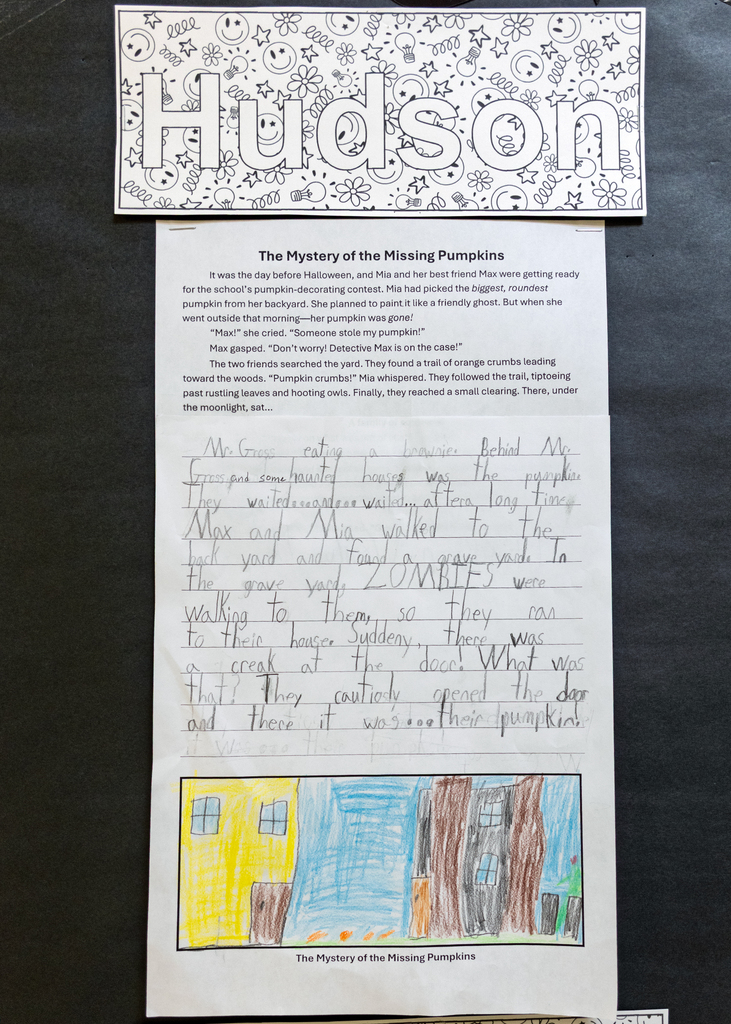 Hudson
The Mystery of the Missing Pumpkins
It was the day before Halloween, and Mia and her best friend Max were getting ready
for the school's pumpkin-decorating contest. Mia had picked the biggest, roundest
pumpkin from her backyard. She planned to paint it like a friendly ghost. But when she
went outside that morning—her pumpkin was gone!
"Max!" she cried. "Someone stole my pumpkin!"
Max gasped. "Don't worry! Detective Max is on the case!"
The two friends searched the yard. They found a trail of orange crumbs leading
toward the woods. "Pumpkin crumbs!" Mia whispered. They followed the trail, tiptoeing
past rustling leaves and hooting owls. Finally, they reached a small clearing. There, under
the moonlight, sat...
Mr. Gross eating a brownie. Behind Mr.
Gross and some haunted houses was the pumpkin.
They waited...and... waited... after a long time
Max and Mia walked to the
back yard and found a grave yard. In
the grave yard, ZOMBIES were
walking to them, so they ran
to their house. Suddeny, there was
a creak at the door! What was
that? They cautiosly opened the door
and there it was...their pumpkin!
The Mystery of the Missing Pumpkins